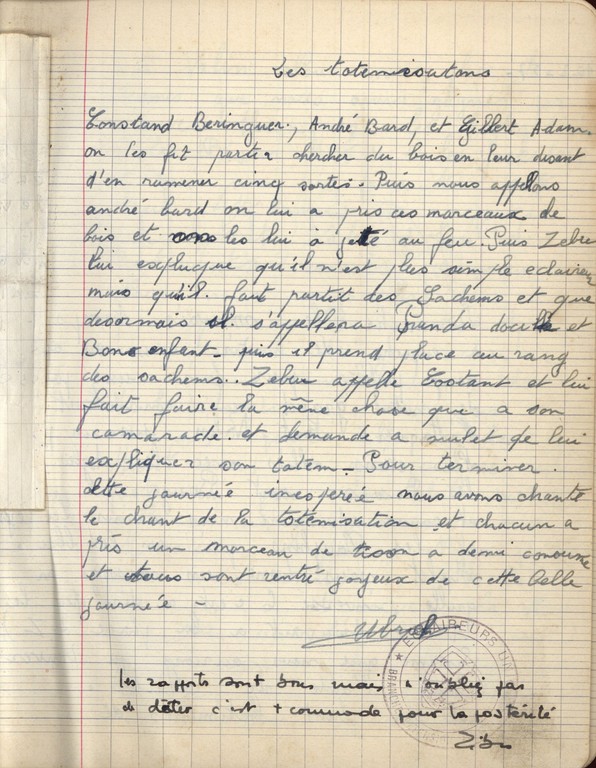 Les totemisations
Constand Beringuer, André Bard, et Gilbert Adam.
on les fit partir chercher du bois en leur disant
d'en ramener cinq sortes. Puis nous appelons
andré bard on lui a pris ces morceaux de
bois et les lui à jeté au feu. Puis Zebre
lui explique qu'il n'est plus simple eclaireur
mais qu'il fait partit des Sachems et que
desormais il s'appellera Panda docile et
Bon enfant. puis il prend place au rang
des sachems.. Zebre appelle Constant et lui
fait faire la même chose que a son
camarade. et demande a mulet de lui
expliquer son totem - Pour terminer.
cette journéé inesperéé nous avons chanté
le chant de la totemisation et chacun a
pris un morceau de a demi consume
et sont rentré joyeux de cette belle
journéé -
ECLAIREURS UN
les rapports sont bons mais n'oubliez pas
de dater c'est + commode pour la postérité